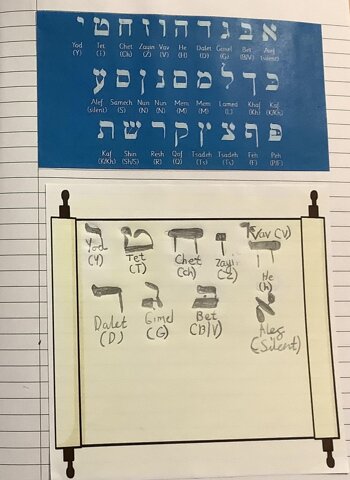 א בּ ג ד ה ו ז ח ט י
Yod Tet Chet Zayin Vav He Dalet Gimel Bet Alef
(Y) (T) (Ch) (Z) (V) (H) (D) (G) (B/V) (silent)
כּ ך ל מ ם נ ן ס ע
Alef Samech Nun Nun Mem Mem Lamed Khaf Kaf
(silent) (S) (N) (N) (M) (M) (L) (Kh) (K/Kh)
פּ ף צ ץ ק ר ש ת
Kaf Shin Resh Qof Tsadeh Tsadeh Feh Peh
(K/Kh) (Sh/S) (R) (Q) (Ts) (Ts) (F) (P/F)
ז ח ט
Vav (V)
Yod Tet Chet Zayi
(Y) (T) (ch) (Z)
ה
He
(h)
א בּ ג ד
Dalet Gimel Bet Aleg
(D) (G) (B/V) (Silent)